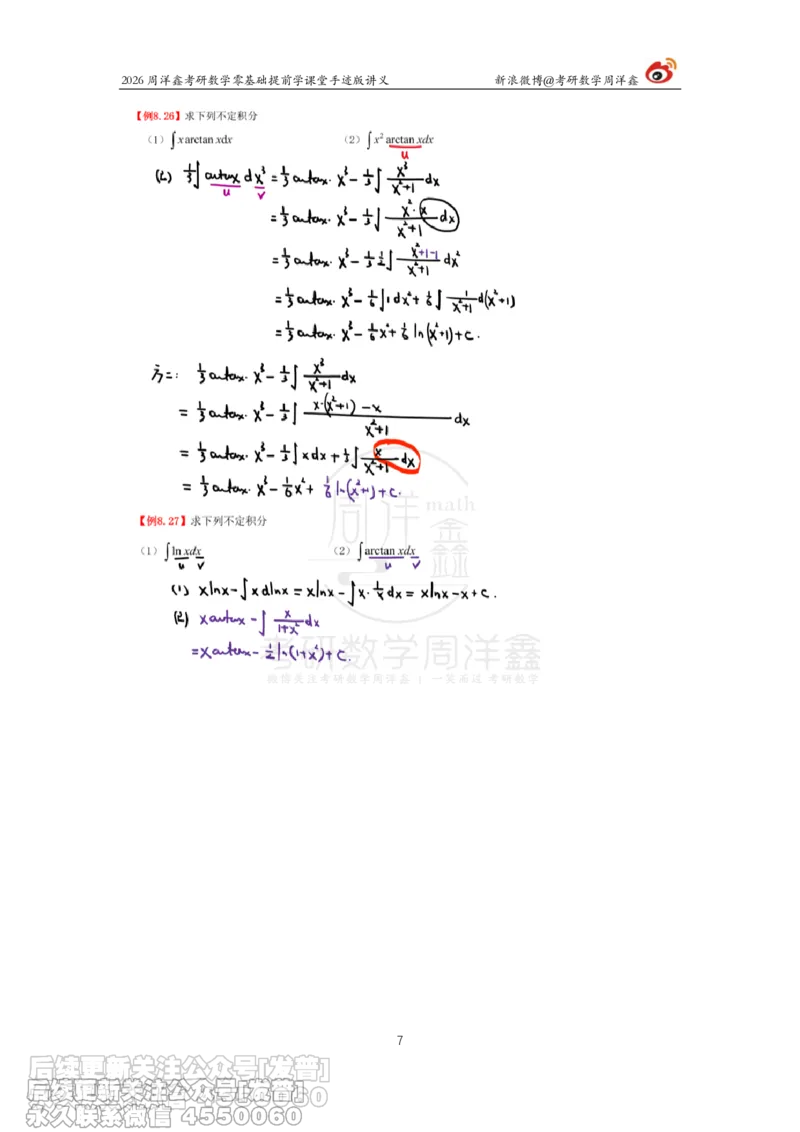 2026 周洋鑫考研数学零基础提前学课堂手迹版讲义 新浪微博@考研数学周洋鑫
【例8.26】求下列不定积分
（1）∫x arctan xdx （2）∫x² arctan xdx
u
(2) ⅓∫arctanx dx³ = ⅓arctanx·x³ − ⅓∫x³/(x²+1) dx
u v
= ⅓arctanx·x³ − ⅓∫(x²·x)/(x²+1) dx
= ⅓arctanx·x³ − ⅓·½∫(x²+1−1)/(x²+1) dx²
= ⅓arctanx·x³ − ⅙∫1dx² + ⅙∫1/(x²+1) d(x²+1)
= ⅓arctanx·x³ − ⅙x² + ⅙ln(x²+1)+C.
方二: ⅓arctanx·x³ − ⅓∫x³/(x²+1) dx
= ⅓arctanx·x³ − ⅓∫(x·(x²+1)−x)/(x²+1) dx
= ⅓arctanx·x³ − ⅓∫xdx + ⅓∫x/(x²+1) dx
= ⅓arctanx·x³ − ⅙x² + ⅙ln(x²+1)+C.
周洋鑫 math
【例8.27】求下列不定积分
（1）∫ln xdx （2）∫arctan xdx
u v u v
(1) xlnx−∫xdlnx = xlnx−∫x·1/x dx = xlnx−x+C.
(2) xarctanx − ∫x/(1+x²) dx
= xarctanx − ½ln(1+x²)+C.
考研数学周洋鑫
微博关注考研数学周洋鑫 | 一笑而过 考研数学
7
后续更新关注公众号[发普]
后续更新关注公众号[发普]
永久联系微信 4550060